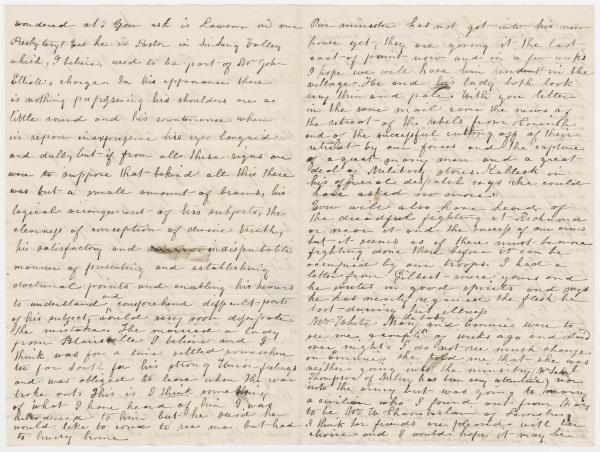 wondered at. You ask is Lawson in our
Presbytery? Yes he is Pastor in Sinking Valley
which, I believe, used to be part of Dr John
Elliott's charge. In his appearance there
is nothing prepossessing his shoulders are a
little round and his countenance when
in repose inexpressive his eyes languid
and dull, but if from all these signs one
were to suppose that behind all this there
was but a small amount of brains, his
logical arrangement of his subjects, the
clearness of conception of divine truth,
his satisfactory and indisputable
manner of presenting and establishing
doctrinal points and enabling his hearers
to understand and comprehend difficult parts
of his subject, would very soon dissipate
the mistake. He married a lady
from Blairsville I believe and I
think was for a time settled somewhere
too far South for his strong Union feelings
and was obliged to leave when the war
broke out. This is I think something
of what I have heard of him. I was
introduced to him but he said he
would like to come to see me but had
to hurry home.
Our minister has not got into his new
house yet, they are giving it the last
coat of paint now and in a few weeks
I hope we will have him resident in the
village. He and his lady both look
very thin and pale. With your letter
in the same mail came the news of
the retreat of the rebels from Corinth
and of the successful cutting off of their
retreat by our forces and the capture
of a great many men and a great
deal of Military stores. Halleck in
his official despatch says he could
have asked no more.
You will also have heard of
the dreadful fighting at Richmond
or near it and the success of our arms
but it seems as if there must be more
fighting done there before it can be
occupied by our troops. I had a
letter from Gilbert since yours and
he writes in good spirits and says
he has nearly regained the flesh he
lost during his illness
Mr White, Mary and Emmie were to
see me a couple of weeks ago and staid
one night. I do not see much change
on Emmie, she told me that she was
neither going into the ministry,
Thompson of has been very attentive, nor
into the army but was going to marry
a civilian who I found out from Mary
to be Wm W Chamberlain of
I think her friends are pleased with her
choice and I would hope it may be